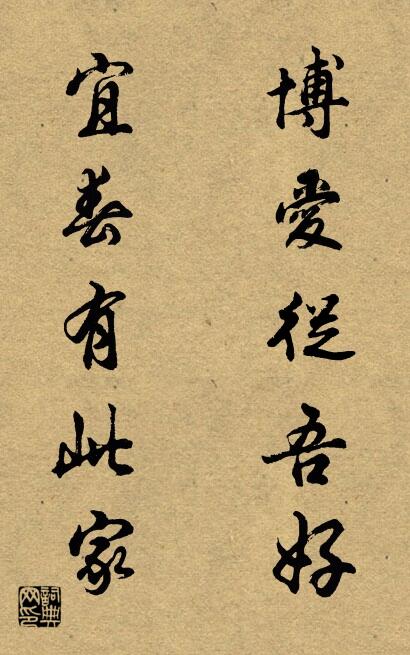 博愛從吾好
宜春有此家
詞典